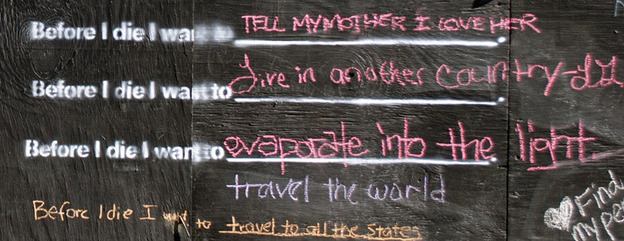 Before I die I want to TELL MY MOTHER I LOVE HER
Before I die I want to Live in another country
Before I die I want to evaporate into the light
travel the world
Before I die I want to travel to all the states
Find
my